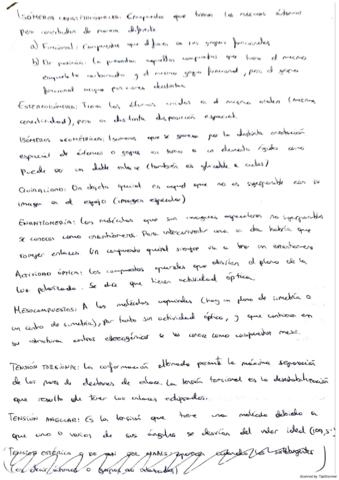 ISÓMEROS CONSTITUCIONALES: Compuestos que tienen los mismos átomos
pero conectados de manera distinta
a) Funcional: Compuestos que difieren en sus grupos funcionales
b) De posición: Lo presentan aquellos compuestos que tienen el mismo
esqueleto carbonado y el mismo grupo funcional, pero el grupo
funcional ocupa posiciones distintas
ESTEREOISÓMEROS: Tienen los átomos unidos en el mismo orden (misma
conectividad), pero con distinta disposición espacial.
ISÓMEROS GEOMÉTRICOS: Isómeros que se generan por la distinta orientación
espacial de átomos o grupos en torno a un elemento rígido como
puede ser un doble enlace (también es aplicable a ciclos)
QUIRALIDAD: Un objeto quiral es aquel que no es superponible con su
imagen en el espejo (imagen especular)
ENANTIOMERÍA: Las moléculas que son imágenes especulares no superponibles
se conocen como enantiómeros. Para interconvertir uno a otro habría que
romper enlaces. Un compuesto quiral siempre va a tener un enantiómero
ACTIVIDAD ÓPTICA: Los compuestos quirales que desvían el plano de la
luz polarizada. Se dice que tienen actividad óptica.
MESOCOMPUESTOS: A las moléculas aquirales (hay un plano de simetría o
un centro de simetría), por tanto sin actividad óptica, y que contienen en
su estructura centros estereogénicos se les conoce como compuestos meso.
TENSIÓN TORSIONAL: La conformación alternada permite la máxima separación
de los pares de electrones de enlace. La tensión torsional es la desestabilización
que resulta de tener los enlaces eclipsados.
TENSIÓN ANGULAR: Es la tensión que tiene una molécula debido a
que uno o varios de sus ángulos se desvían del valor ideal (109,5
TENSIÓN ESTÉRICA O DE VAN DER WAALS: los sustituyentes
(los otros átomos o grupos no enlazados)
Scanned by TapScanner